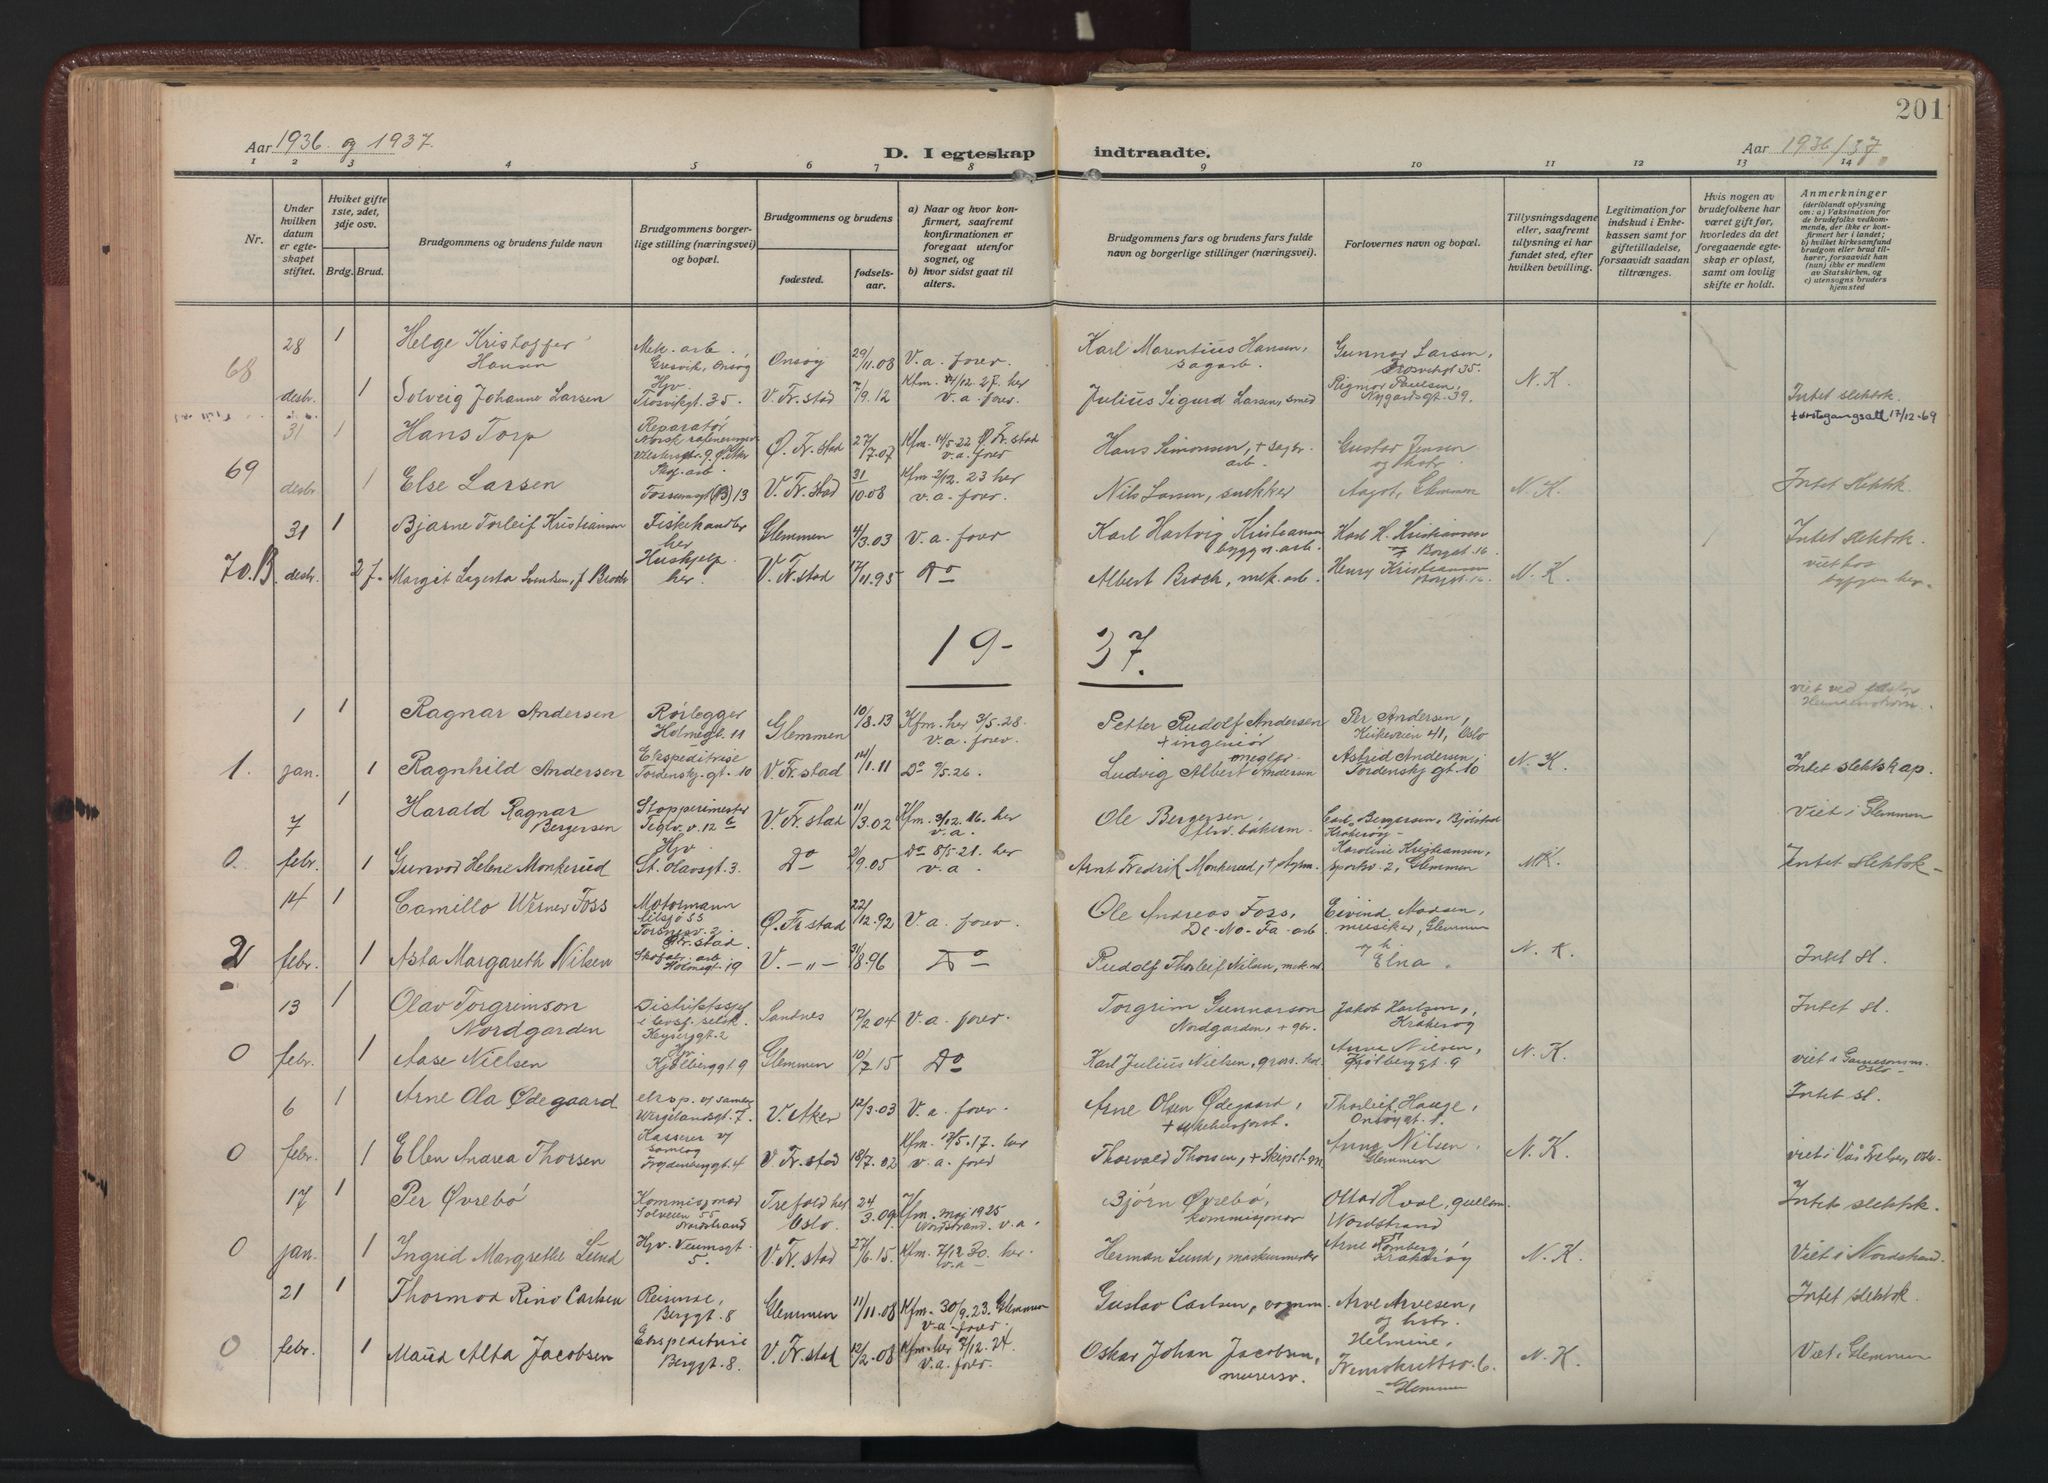 201
Aar 1936 og 1937.
D. I egteskap indtraadte.
Aar 1936/37.
1 2 3 4 5 6 7 8 9 10 11 12 13 14
Nr.
Under hvilken datum er egteskapet stiftet.
Hviket gifte 1ste, 2det, 3dje osv.
Brdg. Brud.
Brudgommens og brudens fulde navn
Brudgommens borgerlige stilling (næringsvei) og bopæl.
Brudgommens og brudens
fødested.
fødselsaar.
a) Naar og hvor konfirmert, saafremt konfirmationen er foregaat utenfor sognet, og
b) hvor sidst gaat til alters.
Brudgommens fars og brudens fars fulde navn og borgerlige stillinger (næringsvei).
Forlovernes navn og bopæl.
Tillysningsdagene eller, saafremt tillysning ei har fundet sted, efter hvilken bevilling.
Legitimation for indskud i Enkekassen samt for giftetilladelse, forsaavidt saadan tiltrænges.
Hvis nogen av brudefolkene har været gift før, hvorledes da det foregaaende egteskap er opløst, samt om lovlig skifte er holdt.
Anmerkninger (deriblandt oplysning om: a) Vaksination for de brudefolks vedkommende, der ikke er konfirmert her i landet; b) hvilket kirkesamfund brudgom eller brud tilhører, forsaavidt han (hun) ikke er medlem av Statskirken, og c) utensogns bruders hjemsted
68
28 1 Helge Kristoffer Hansen Mek. arb. Gresvik, Onsøy Onsøy 29/11.08 V. a. forev. Karl Marentius Hansen, sagarb. Gunnar Larsen, Trosvikgt 35.
desbr. 1 Solveig Johanne Larsen Hjv. Trosvikgt. 35. V. Fr. stad 7/9.12 Kfm. 4/12. 27. her v. a. forev. Julius Sigurd Larsen, smed Rigmor Paulsen, Nygaardsgt. 39. N. K. Intet slektsk.
69
31 1 Hans Torp Reparatør Norsk Ø. Fr. stad 27/7.07 Kfm. 14/5.22 Ø. Fr. stad v. a. forev Hans Simonsen, + sagbr. arb. Gustav Jensen og hstr. 17/12-69
desbr 1 Else Larsen Fossumgt (B) 13 V. Fr. stad 31/10.08 Kfm. 2/12. 23 her v. a. forev. Nils Larsen, snekker Aagot, Glemmen N. K. Intet slektsk.
70.B
31 1 Bjarne Torleif Kristiansen Fiskehandler her Glemmen 4/3.03 V. a. forev Karl Hartvig Kristiansen bygg n. arb. Karl H. Kristiansen Borggt. 16. Intet slektsk.
desbr. 2 f. Margit Lagerta Svendsen, f Broch Huskjelp her. V. Fr. stad 17/11.95 Do Albert Broch, mek. arb. Henry Kristiansen Borggt. 16. N. K. viet hos byfogen her.
19- 37.
1.
1 1 Ragnar Andersen Rørlegger Holmegt. 11 Glemmen 10/8.13 Kfm. her 3/5. 28. v. a. forev. Petter Rudolf Andersen + ingeniør Per Andersen, Kirkeveien 41, Oslo viet ved
jan. 1 Ragnhild Andersen Ekspeditrise Tordenskj. gt. 10 V. Fr. stad 14/1.11 Do 9/5.26. Ludvig Albert Andersen megler Astrid Andersen, Tordenskj gt. 10 N. K. Intet slektskap.
0
7 1 Harald Ragnar Bergersen Stoppemester Teglv. v. 12 b V. Fr. stad 11/3.02 Kfm. 3/12. 16. her v. a. Ole Bergersen, bakerm. Carl Bergersen, Kråkerøy Viet i Glemmen
febr. 1 Gunvor Helene Monkerud Hjv. St. Olavsgt. 3. Do 2/9.05 Do 8/5. 21. her v. a. Arnt Fredrik Monkerud, + Karoline Kristiansen, Sportsv. 2, Glemmen N. K. Intet slektsk.
2
14 1 Camillo Werner Foss Motormann Torsnesv. 2 Ø. Fr. stad Ø. Fr. stad 22/12.92 V. a. forev. Ole Andreas Foss, De-No-Fa-arb. Eivind Madsen, musiker, Glemmen
febr. 1 Asta Margareth Nilsen Skofabr. arb Holmegt. 19 V. -„- 31/8.96 Do Rudolf Thorleif Nilsen, mek. arb. og h. Elna N. K. Intet sl.
0
13 1 Olav Torgrimson Nordgarden Distriktssjef i livsf. selsk. Keysergt. 2 Sandnes 17/2.04 V. a. forev. Torgrim Gunnarson Nordgarden, + gbr. Jakob Karlsen, Kråkerøy Intet sl.
febr. 1 Aase Nielsen Hjv. Kjølberggt 9 Glemmen 10/7.15 Do Karl Julius Nielsen, gross. Anna Nielsen, Kjølberggt. 9 N. K. viet i Oslo
0
6 1 Arne Ola Ødegaard Wergelandsgt. 7 V. Aker 12/3.03 V. a. forev. Arne Olsen Ødegaard, + Thorleif Hauge, Onsøygt. 1. Intet sl.
febr. 1 Ellen Andrea Thorsen Kasserer Frydenberggt 4 V. Fr. stad 18/7.02 Kfm. 13/5. 17. her v. a. forev Thorvald Thorsen, + Anna Nilsen, Glemmen N. K. viet i Vår Frelser, Oslo.
0
17 1 Per Øvrebø Kommisjonær Solveien 55 Nordstrand Trefold her Oslo 24/3.09 Kfm. mai 1925 Nordstrand v. a. Bjørn Øvrebø, kommisjonær Ottar Hval, gullsm. Nordstrand Intet slektsk.
jan. 1 Ingrid Margrethe Lund Hjv. Veumsgt. 5. V. Fr. stad 27/6.15. Kfm. 7/12 30. her. v. a Herman Lund, maskinmester Arne Romberg, Kråkerøy N. K. Viet i Nordstrand.
0
21 1 Thormod Rino Carlsen Reisende, Berggt. 8 Glemmen 11/11.08 Kfm. 30/9. 23. Glemmen v. a. forev. Gustav Carlsen, vognm. Arve Arvesen, og hstr. Intet slektsk.
febr. 1 Maud Alta Jacobsen Ekspeditrise Berggt. 8. V. Fr. stad 12/2.08 Kfm. her 7/12. 24. v. a. forev. Oskar Johan Jacobsen, murersv. Helmine, Glemmen N. K. Viet i Glemmen